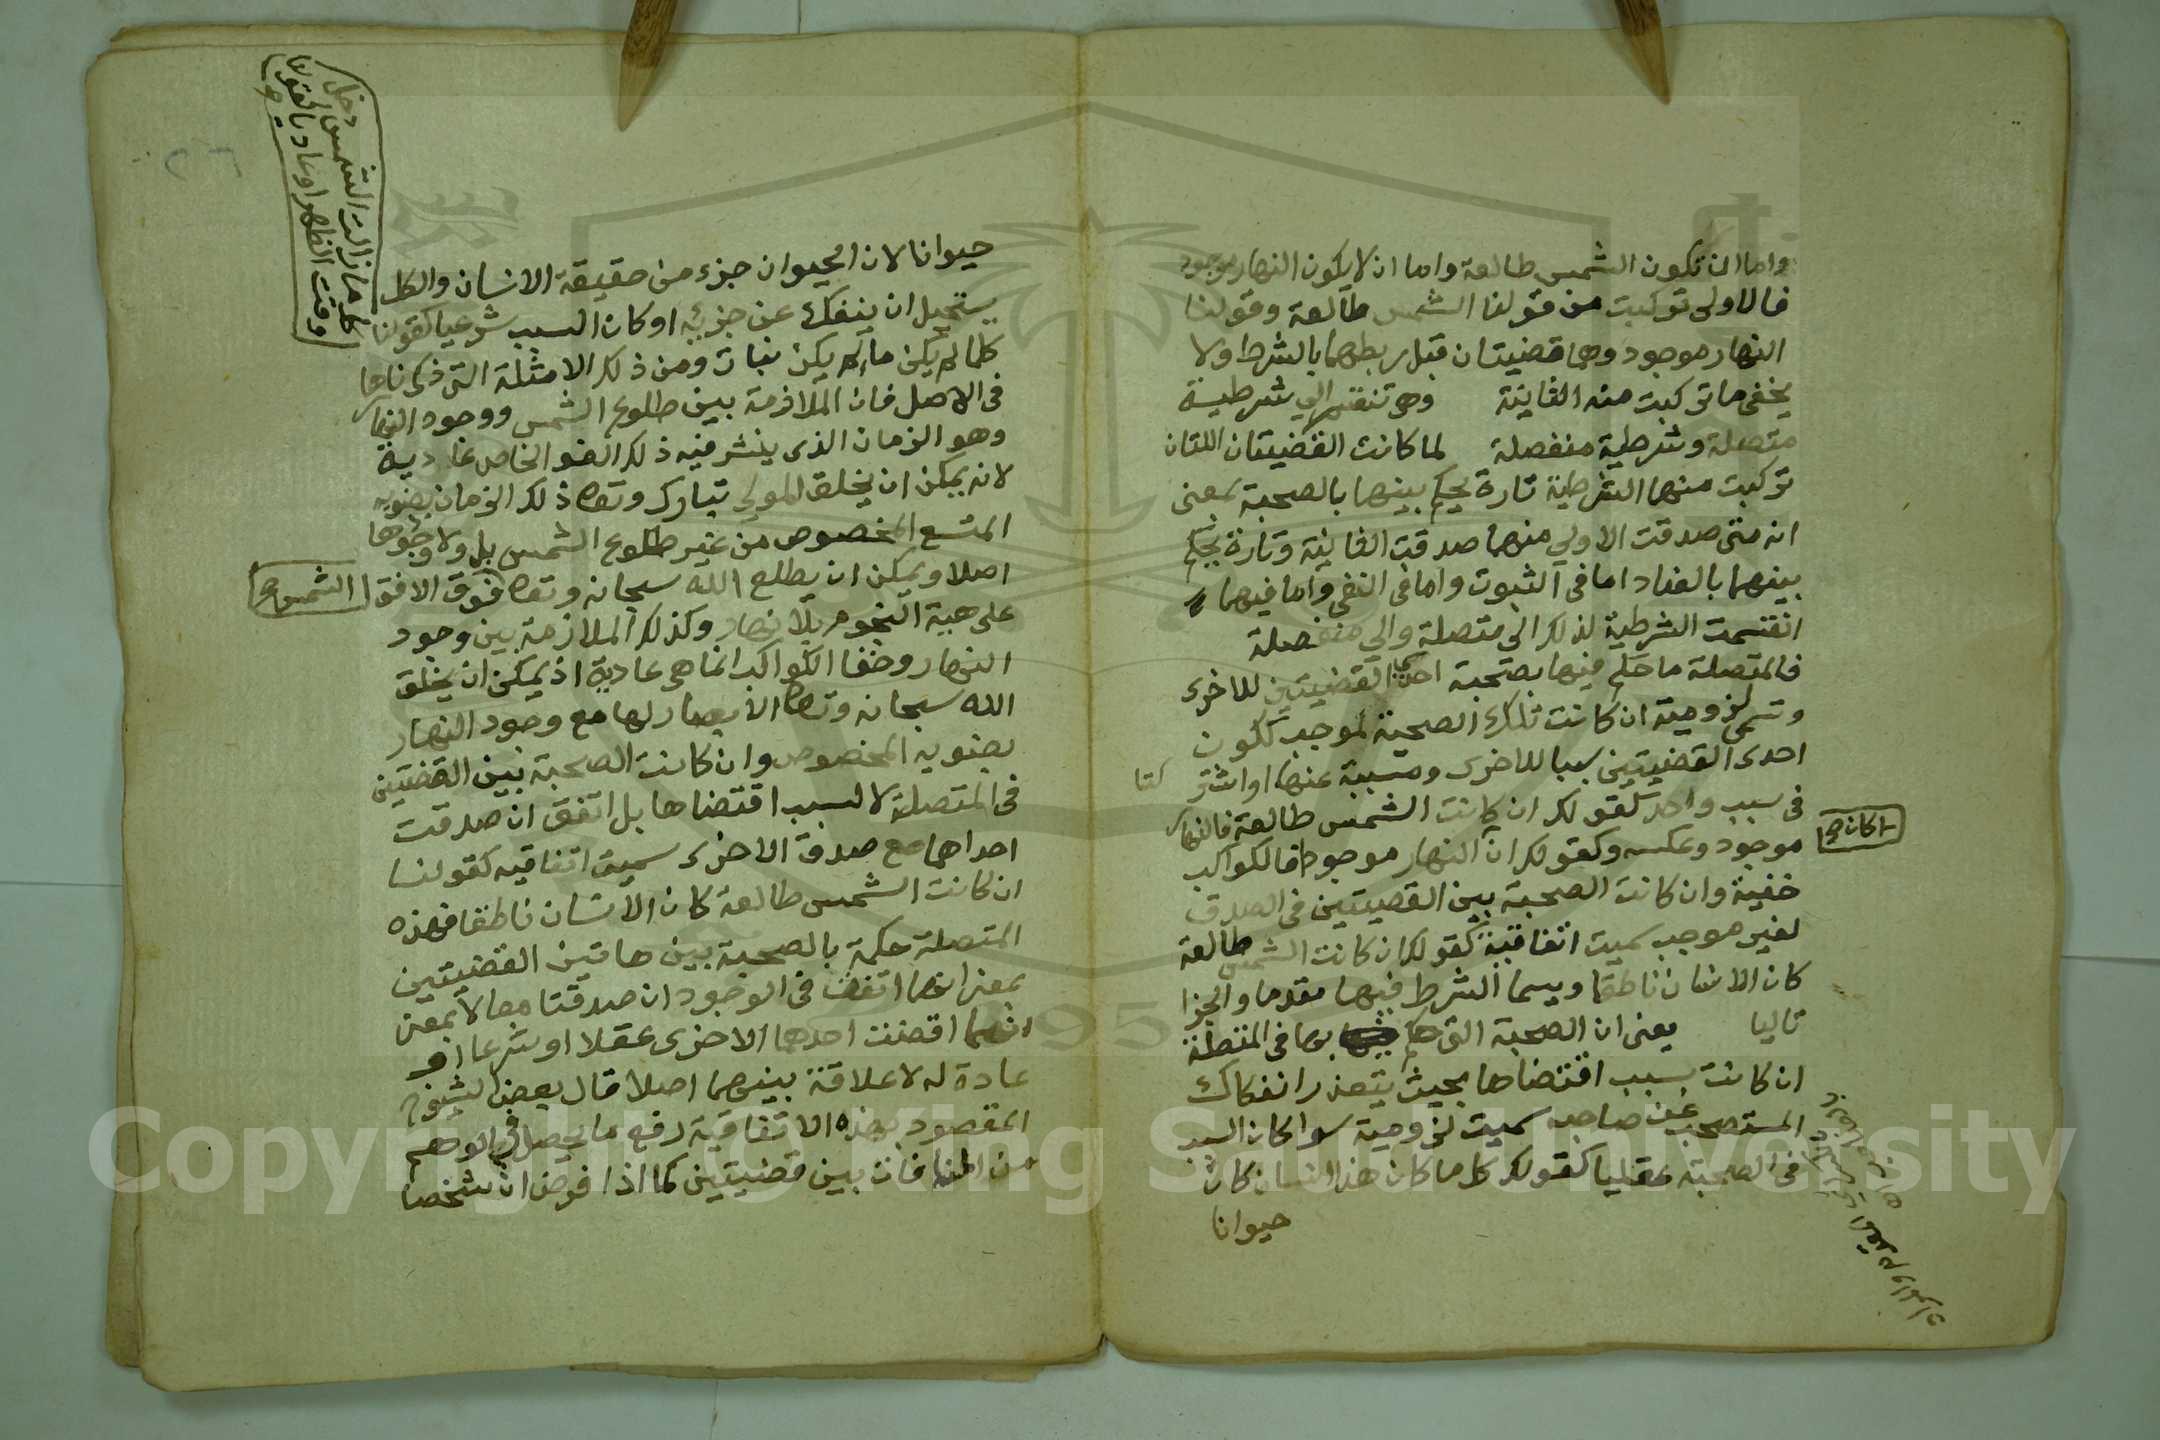 واما ان تكون الشمس طالعة واما ان لا يكون النهار موجود
فالاولى تركبت من قولنا الشمس طالعة وقولنا
النهار موجود وهما قضيتان قبل ربطهما بالشرط ولا
يخفى ما تركبت منه الثانية وهى تنقسم الي شرطية
متصلة وشرطية منفصلة لما كانت القضيتان اللتان
تركبت منهما الشرطية تارة يحكم بينهما بالصحبة بمعنى
انه متى صدقت الاولي منهما صدقت الثانية وتارة يحكم
بينهما بالعناد اما فى الثبوت واما فى النفي واما فيهما
انقسمت الشرطية لذلك الى متصلة والى منفصلة
فالمتصلة ما حكم فيها بصحبة احدى القضيتين للاخرى
وتسمى لزومية ان كانت تلك الصحبة لموجب ككون
احدى القضيتين سببا للاخرى ومسببة عنها او اشتر كتا
فى سبب واحد كقولك ان كانت الشمس طالعة فالنهار
موجود وعكسه وكقولك ان النهار موجودا فالكواكب
كان صح
خفية وان كانت الصحبة بين القضيتين فى الصدق
لغير موجب سميت اتفاقية كقولك ان كانت الشمس طالعة
كان الانسان ناطقا ويسما الشرط فيها مقدما والجزا
تاليا يعنى ان الصحبة التى حكم بها فى المتصلة
ان كانت بسبب اقتضاها بحيث يتعذر انفكاك
المستصحب عن صاحبه سميت لزومية سوا كان السبب
فى الصحبة عقليا كقولك كلما كان هذا انسان كان
حيوانا
حيوانا لان الحيوان جزء من حقيقة الانسان والكل
يستحيل ان ينفك عن جزئه او كان السبب شرعيا كقولنا
كلما زالت الشمس دخل
وقت الظهر او عاديا كقولنا
صح
كلما لم يكن ماء لم يكن نبات ومن ذلك الامثلة التى ذكرناها
فى الاصل فان الملازمة بين طلوع الشمس ووجود النهار
وهو الزمان الذى ينشر فيه ذلك الضو الخاص عادية
لانه يمكن ان يخلق المولي تبارك وتعا ذلك الزمان بضويه
المتسع المخصوص من غير طلوع الشمس بل ولا وجودها
اصلا ويمكن ان يطلع الله سبحانه وتعا فوق الافق الشمس صح
على هية النجوم بلا نهار وكذلك الملازمة بين وجود
النهار وخفا الكواكب انما هى عادية اذ يمكن ان يخلق
الله سبحانه وتعا الابصار لها مع وجود النهار
بضويه المخصوص وان كانت الصحبة بين القضيتين
فى المتصلة لا لسبب اقتضاها بل اتفق ان صدقت
احداهما مع صدق الاخرى سميت اتفاقيه كقولنا
ان كانت الشمس طالعة كان الانسان ناطقا فهذه
المتصلة حكمة بالصحبة بين هاتين القضيتين
بمعنى انهما اتفقت فى الوجود ان صدقتا معا لا بمعنى
انهما اقتضت احدهما الاخرى عقلا او شرعا او
عادة له لا علاقة بينهما اصلا قال بعض الشيوخ
المقصود بهذه الاتفاقية رفع ما يحصل فى الوهم
من المنافات بين قضيتين كما اذا فرض ان شخصا